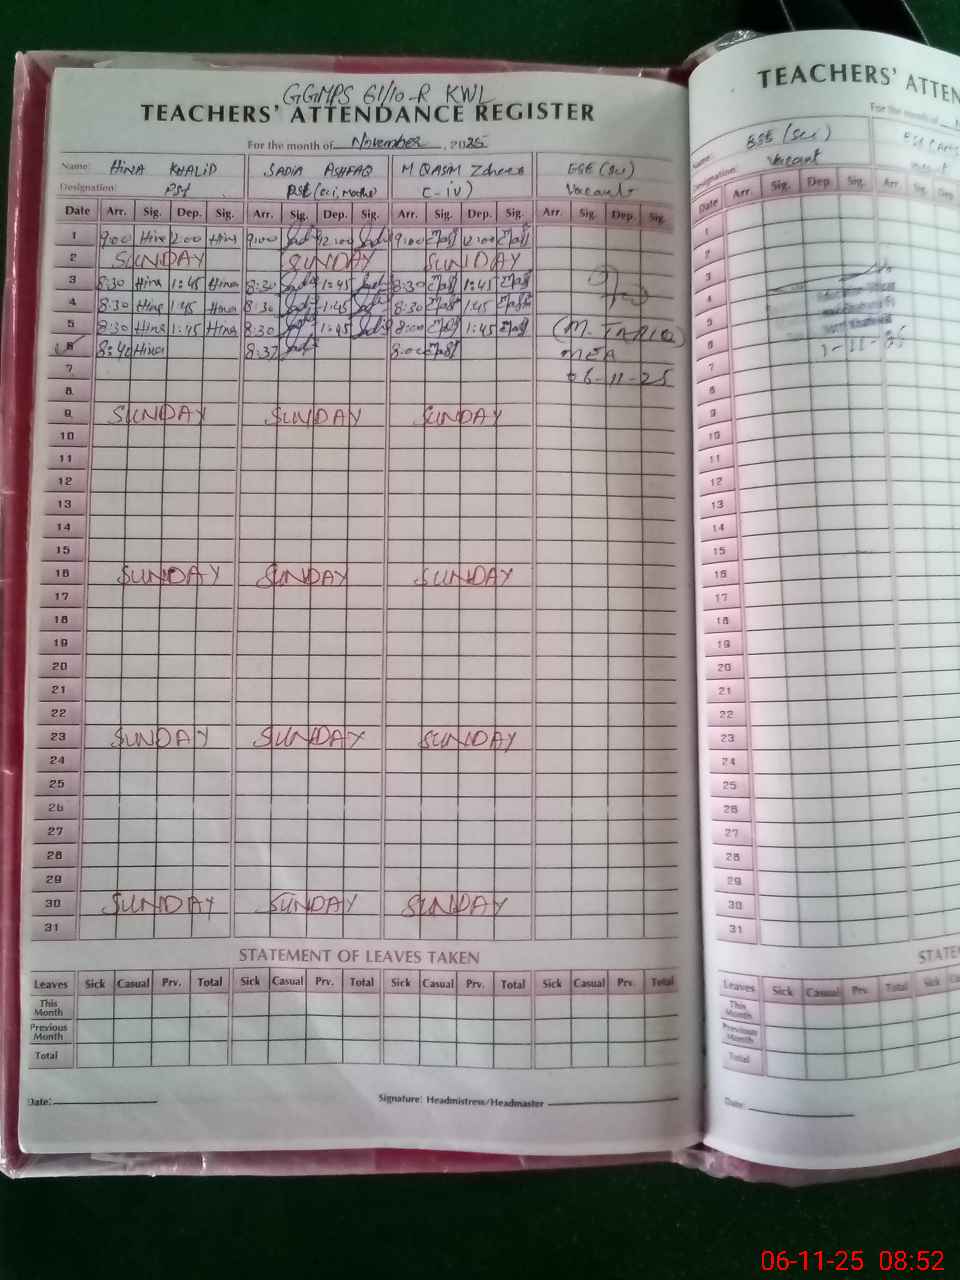 GGMPS 61/10-R KWL
TEACHERS' ATTENDANCE REGISTER
For the month of November, 2025
Name: HINA KHALID SADIA ASHFAQ M QASIM ESE (Sci)
Designation: PST C-iv) Vacant
Date Arr. Sig. Dep. Sig. Arr. Sig. Dep. Sig. Arr. Sig. Dep. Sig. Arr. Sig. Dep. Sig.
1 9:00 Hina 12:00 Hina 9:00 12:00 9:00 12:00
2 SUNDAY SUNDAY SUNDAY
3 8:30 Hina 1:45 Hina 8:30 1:45 8:30 1:45
4 8:30 Hina 1:45 Hina 8:30 1:45 8:30 1:45
5 8:30 Hina 1:45 Hina 8:30 1:45 8:00 1:45 (M. TARIQ)
6 8:40 Hina 8:37 8:00 MEA
7 06-11-25
8
9 SUNDAY SUNDAY SUNDAY
10
11
12
13
14
15
16 SUNDAY SUNDAY SUNDAY
17
18
19
20
21
22
23 SUNDAY SUNDAY SUNDAY
24
25
26
27
28
29
30 SUNDAY SUNDAY SUNDAY
31
STATEMENT OF LEAVES TAKEN
Leaves Sick Casual Prv. Total Sick Casual Prv. Total Sick Casual Prv. Total Sick Casual Prv. Total
This Month
Previous Month
Total
Date: Signature: Headmistress/Headmaster
TEACHERS' ATTEN
For the month of
Name: ESE (Sci)
Designation: Vacant
Date Arr. Sig. Dep. Sig. Arr. Sig. Dep
1
2
3
4
5
6 1-11-25
7
8
9
10
11
12
13
14
15
16
17
18
19
20
21
22
23
24
25
26
27
28
29
30
31
STATE
Leaves Sick Casual Prv. Total Sick
This Month
Previous Month
Total
Date:
06-11-25 08:52